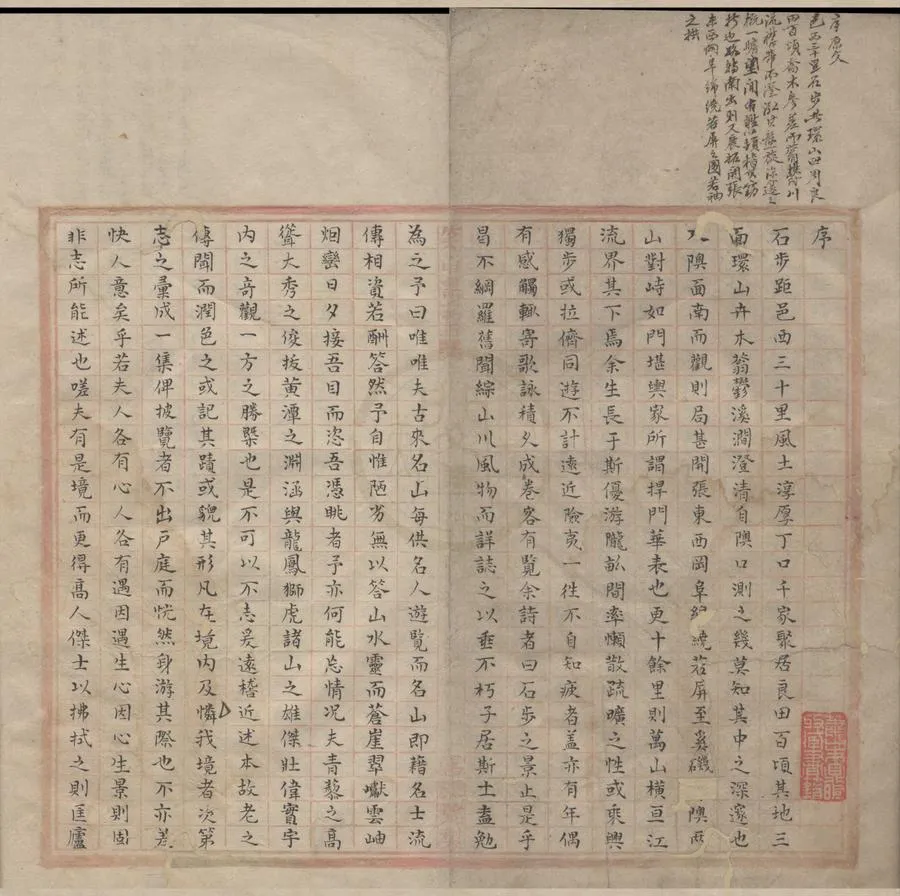 序原文
邑西三十里石步共環山四周良
田百頃喬木參差而蓊樾川
流襟帶而澄泓
東西岡阜綿繞若屏之圍若袖
之拱
序
石步距邑西三十里風土淳厚丁口千家聚居良田百頃其地三
面環山卉木蓊鬱溪澗澄清自隩口測之幾莫知其中之深邃也
入隩面南而觀則局甚開張東西岡阜綿繞若屏至奚磯隩兩
山對峙如門堪輿家所謂捍門華表也更十餘里則萬山橫亘江
流界其下焉余生長于斯優游隴畝間率懶散疏曠之性或乘興
獨步或拉儕同遊不計遠近險夷一徃不自知疲者盖亦有年偶
有感觸輒寄歌詠積久成卷客有覽余詩者曰石步之景止是乎
曷不綱羅舊聞綜山川風物而詳誌之以垂不朽子居斯土盍勉
為之予曰唯唯夫古來名山每供名人遊覽而名山即藉名士流
傳相資若酬答然予自惟陋劣無以答山水靈而蒼崖翠巘雲岫
烟巒日夕接吾目而恣吾憑眺者予亦何能忘情况夫青藜之高
聳大秀之俊拔黄潭之淵涵與龍鳳獅虎諸山之雄傑壯偉實宇
內之奇觀一方之勝槩也是不可以不志爰遠稽近述本故老之
傳聞而潤色之或記其蹟或貌其形凡在境內及憐我境者次第
志之彙成一集俾披覽者不出戶庭而恍然身游其際也不亦差
快人意矣乎若夫人各有心人各有遇因遇生心因心生景則固
非志所能述也嗟夫有是境而更得高人傑士以拂拭之則匡廬